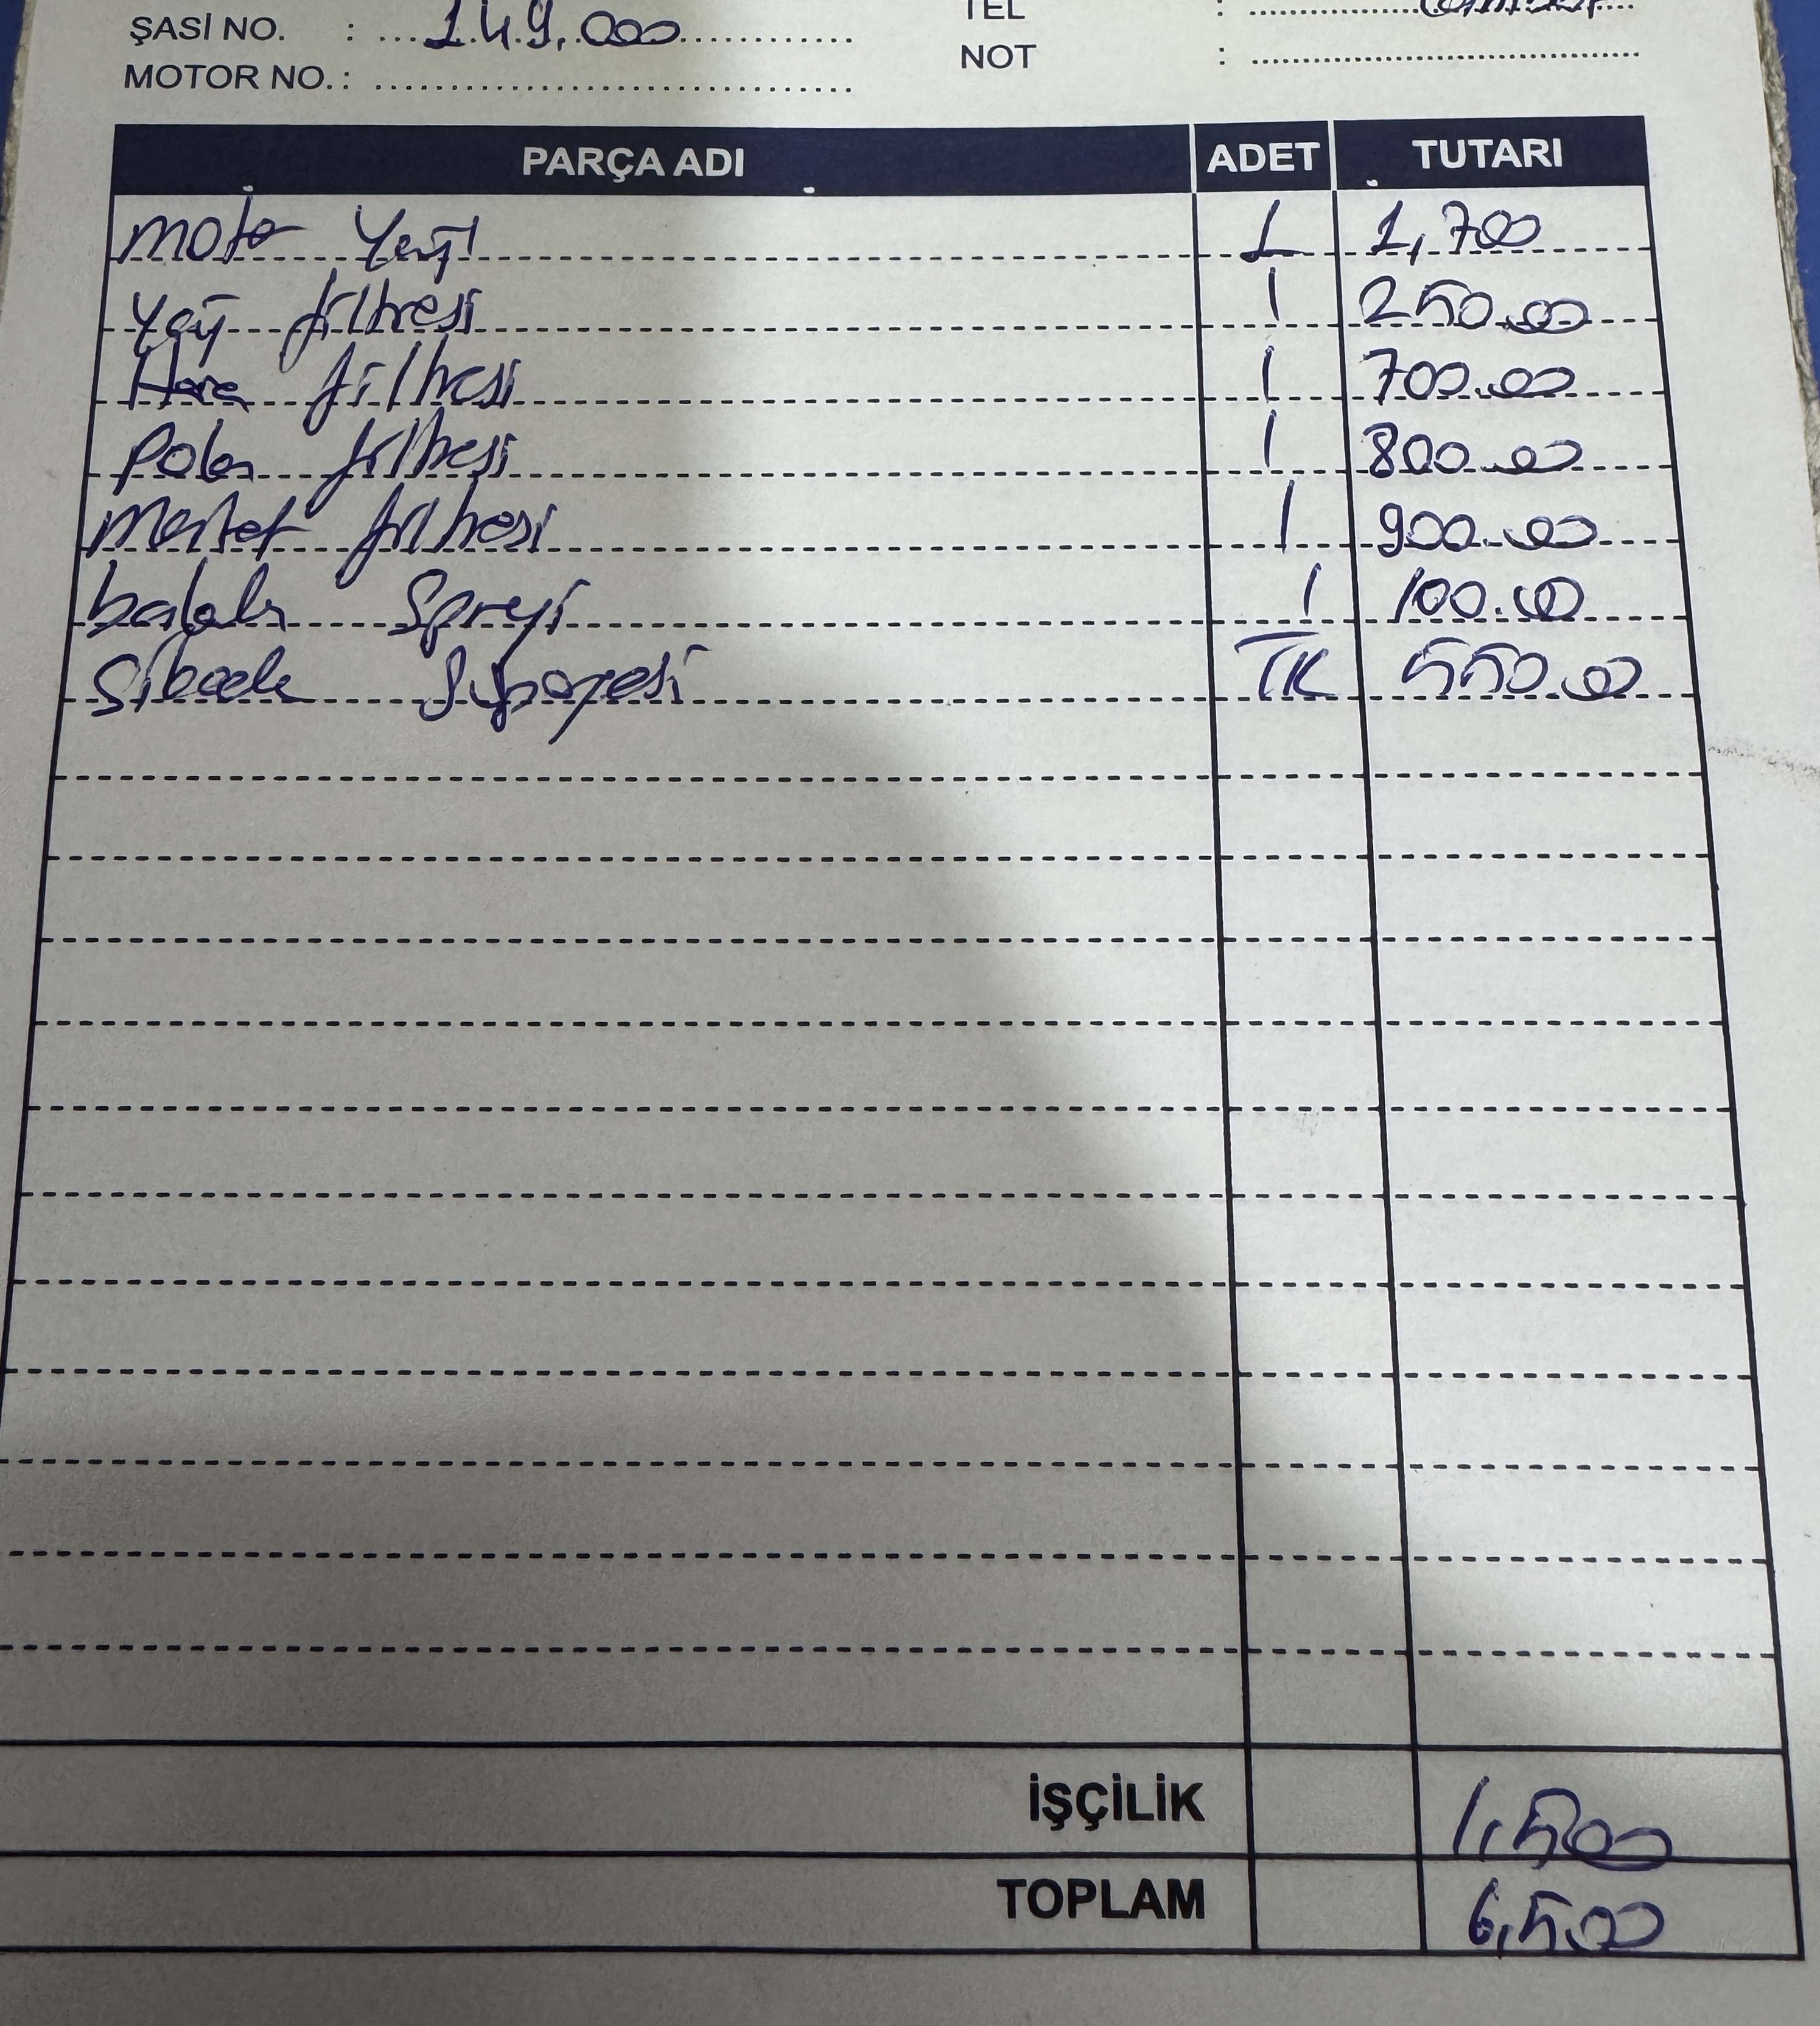 ŞASİ NO. : 149.000 TEL :
MOTOR NO. : NOT :
PARÇA ADI ADET TUTARI
motor Yağı 1 1,700
Yağ filtresi 1 250.00
Hava filtresi 1 700.00
Polen filtresi 1 800.00
Mazot filtresi 1 900.00
balata Spreyi 1 100.00
Silecek Süpürgesi TK 550.00
İŞÇİLİK 1,500
TOPLAM 6,500